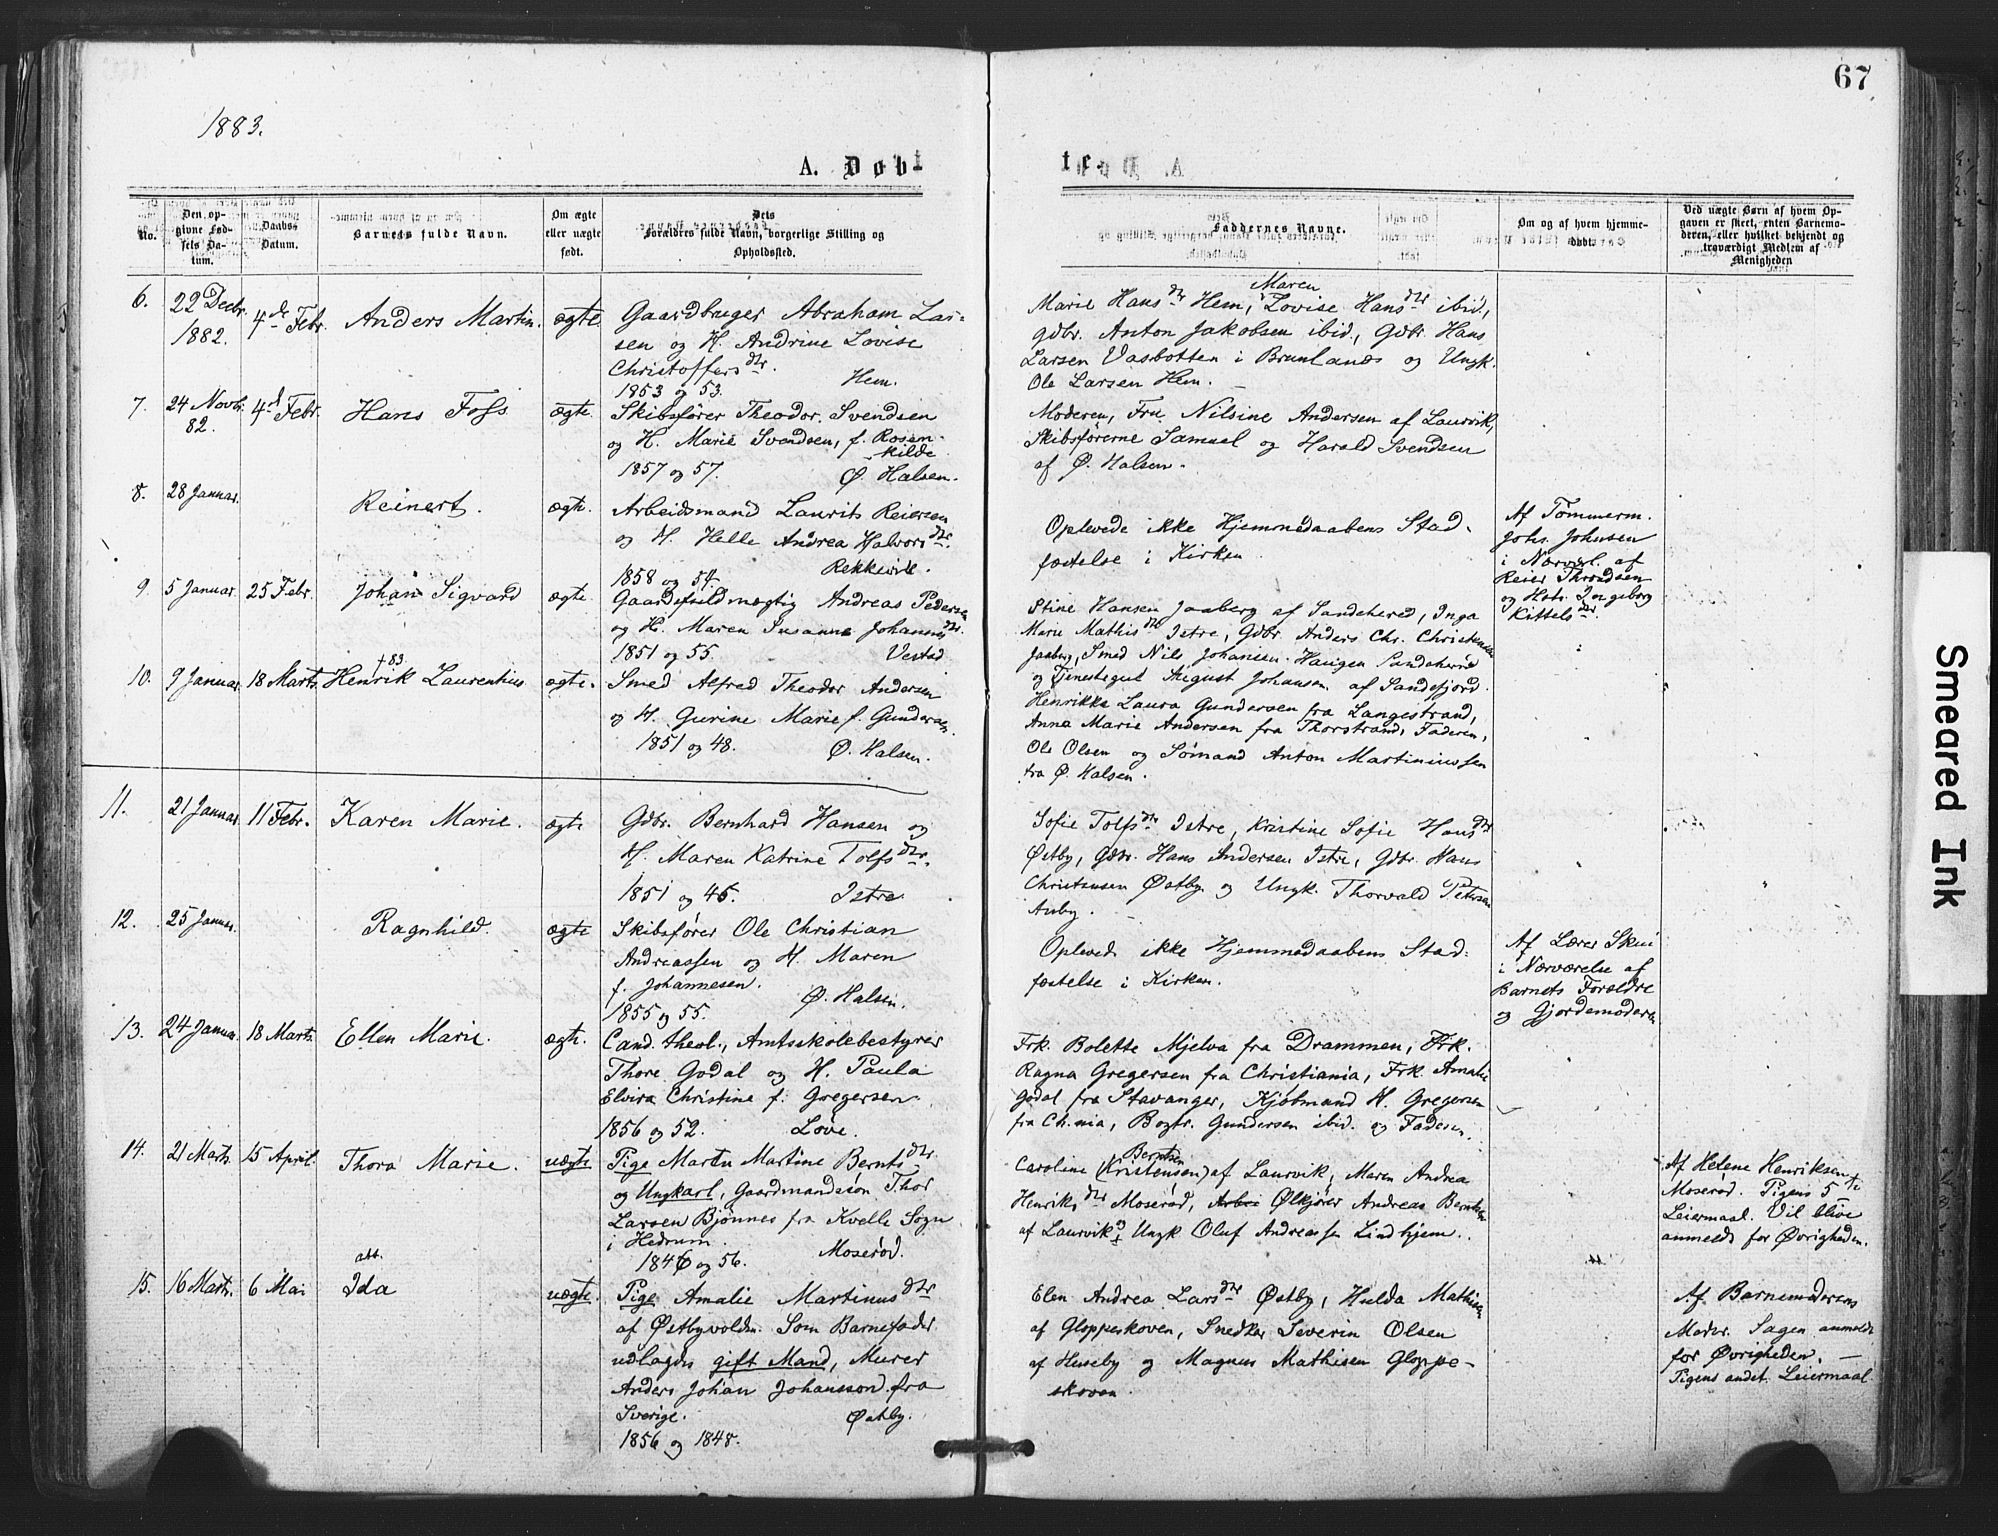 67
1883.
A. Døbt
Den op-
givne Fød-
sels Da-
tum.
No.
Daabs-
Datum.
Barnets fulde Navn.
Om ægte
eller uægte
født.
Dets
Forældres fulde Navn, borgerlige Stilling og
Opholdssted.
Faddernes Navne.
Om og af hvem hjemme-
døbt.
Ved uægte Børn af hvem Op-
gaven er skeet, enten Barnemo-
deren, eller hvilket bekjendt og
troværdigt Medlem af
Menigheden
6. 22 Decbr. 1882. 4de Febr. Anders Martin. ægte
Gaardbruger Abraham Lar-
sen og H. Andrine Lovise
Christoffersdtr.
Hem.
1853 og 53.
Maren
Marie Hansdtr Hem, Lovise Hansdtr ibid,
gdbr. Anton Jakobsen ibid, Gdbr. Hans
Larsen Vasbotten i Brunlands og Ungk.
Ole Larsen Hem.
7. 24 Novbr. 82. 4de Febr. Hans Foss ægte
Skibsfører Theodor Svendsen
og H. Marie Svendsen, f. Rosen-
kilde
1857 og 57. Ø. Halsen.
Moderen, Fru Nilsine Andersen af Laurvik,
Skibsførerne Samuel og Harald Svendsen
af Ø. Halsen.
8. 28 Januar. Reinert. ægte.
Arbeidsmand Laurits Reiersen
og H. Helle Andrea Halvorsdtr.
1858 og 54. Rekkevik.
Oplevede ikke Hjemmedaabens Stad-
fæstelse i Kirken.
Af Tømmerm.
Johs. Johnsen
i Nærværl. af
Reier Throndsen
og Hstr. Ingeborg
Kittelsdtr.
9. 5 Januar. 25 Febr. Johan Sigvard ægte
Gaardsfuldmægtig Andreas Pedersen
og H. Maren Susanne Johannesdtr.
1851 og 55. Vestad
Stine Hansen Jaaberg af Sandehered, Inga
Marie Mathisdtr Istre, Gdbr. Anders Chr. Christensen
Jaaberg, Smed Nils Johansen Haugen Sandeherred
og Tjenestegut August Johansen af Sandefjord.
10. 9 Januar. 18 Marts. †83. Henrik Laurentius ægte.
Smed Alfred Theodor Andersen
og H. Gurine Marie f. Gundersen.
1851 og 48. Ø. Halsen.
Henrikka Laura Gundersen fra Langestrand,
Anna Marie Andersen fra Thorstrand, Faderen,
Ole Olsen og Sømand Anton Martiniussen
fra Ø. Halsen.
11. 21 Januar. 11 Febr. Karen Marie. ægte
Gdbr. Bernhard Hansen og
H. Maren Katrine Tolfsdtr.
1851 og 45. Istre
Sofie Tolfsdtr Istre, Kristine Sofie Hansdtr
Østby, Gdbr. Hans Andersen Istre, Gdbr. Hans
Christensen Østby og Ungk. Thorvald Petersen
Auby.
12. 25 Januar. Ragnhild. ægte
Skibsfører Ole Christian
Andreassen og H. Maren
f. Johannesen.
1855 og 55. Ø. Halsen.
Oplevede ikke Hjemmedaabens Stad-
fæstelse i Kirken.
Af Lærer Skui
i Nærværelse af
Barnets Forældre
og Gjordemoderen
13. 24 Januar. 18 Marts. Ellen Marie. ægte.
Cand. theol., Amtsskolebestyrer
Thore Godal og H. Paula
Elvira Christine f. Gregersen.
1856 og 52. Løve.
Frk. Bolette Mjelva fra Drammen, Frk.
Ragna Gregersen fra Christiania, Frk. Amalie
Godal fra Stavanger, Kjøbmand H. Gregersen
fra Ch.nia, Bogtr. Gundersen ibid. og Faderen.
14. 21 Marts. 15 April. Thora Marie. uægte
Pige Marthe Martine Berntsdtr
og Ungkarl, Gaardmandssøn Thor
Larsen Bjønnes fra Kvelle Sogn
i Hedrum.
1846 og 56. Moserød.
Berntsen
Caroline (Kristensen) af Laurvik, Maren Andrea
Henriksdtr Moserød, Ølkjører Andreas Berntsen
af Laurvik og Ungk Oluf Andreassen Lindhjem.
Af Helene Henriksen
Moserød. Pigens 5te
Leiermaal. Vil blive
anmeldt for Øvrigheden.
15. 16 Marts. 6 Mai att. Ida uægte.
Pige Amalie Martinusdtr
af Østbyvolden. Som Barnefader
udlagdes gift Mand, Murer
Anders Johan Johansson fra
Sverige. Østby.
1856 og 1848.
Elen Andrea Larsdtr Østby, Hulda Mathisen
af Gloppeskoven, Snedker Severin Olsen
af Huseby og Magnus Mathisen Gloppe-
skoven.
Af Barnemoderens
Moder. Sagen anmeldt
for Øvrigheden. —
Pigens andet Leiermaal
Smeared Ink